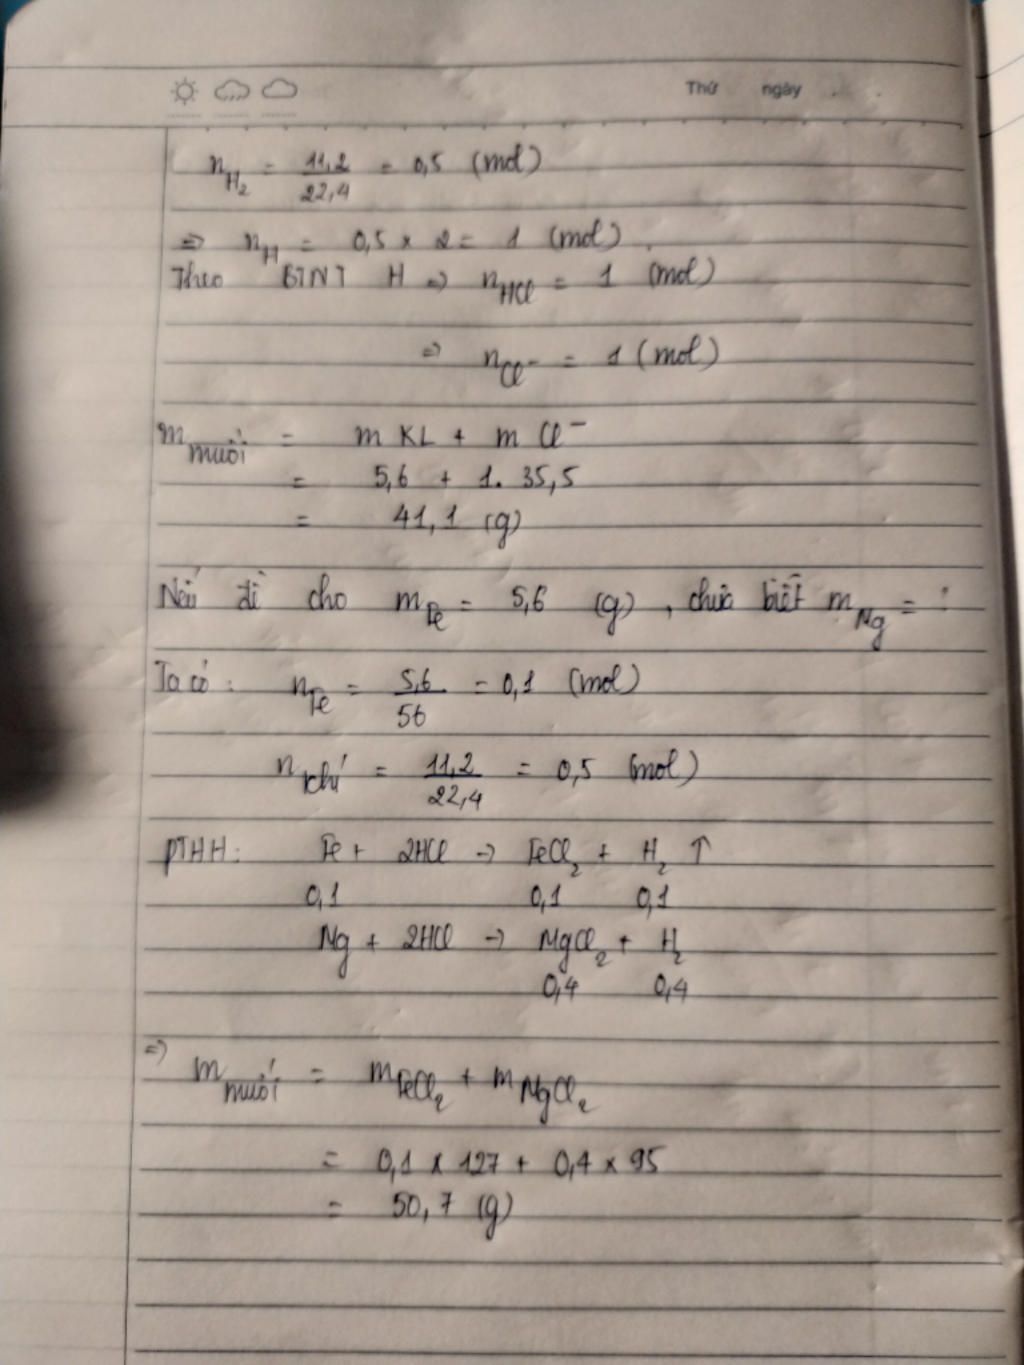 Thứ ngày
n_H₂ = 11,2/22,4 = 0,5 (mol)
⇒ n_H = 0,5 × 2 = 1 (mol)
Theo BTNT H ⇒ n_HCl = 1 (mol)
⇒ n_Cl⁻ = 1 (mol)
m_muối = m KL + m Cl⁻
= 5,6 + 1. 35,5
= 41,1 (g)
Nếu đề cho m_Fe = 5,6 (g), chưa biết m_Mg = ?
Ta có: n_Fe = 5,6/56 = 0,1 (mol)
n_khí = 11,2/22,4 = 0,5 (mol)
PTHH: Fe + 2HCl → FeCl₂ + H₂ ↑
0,1 0,1 0,1
Mg + 2HCl → MgCl₂ + H₂
0,4 0,4
⇒ m_muối = m_FeCl₂ + m_MgCl₂
= 0,1 × 127 + 0,4 × 95
= 50,7 (g)